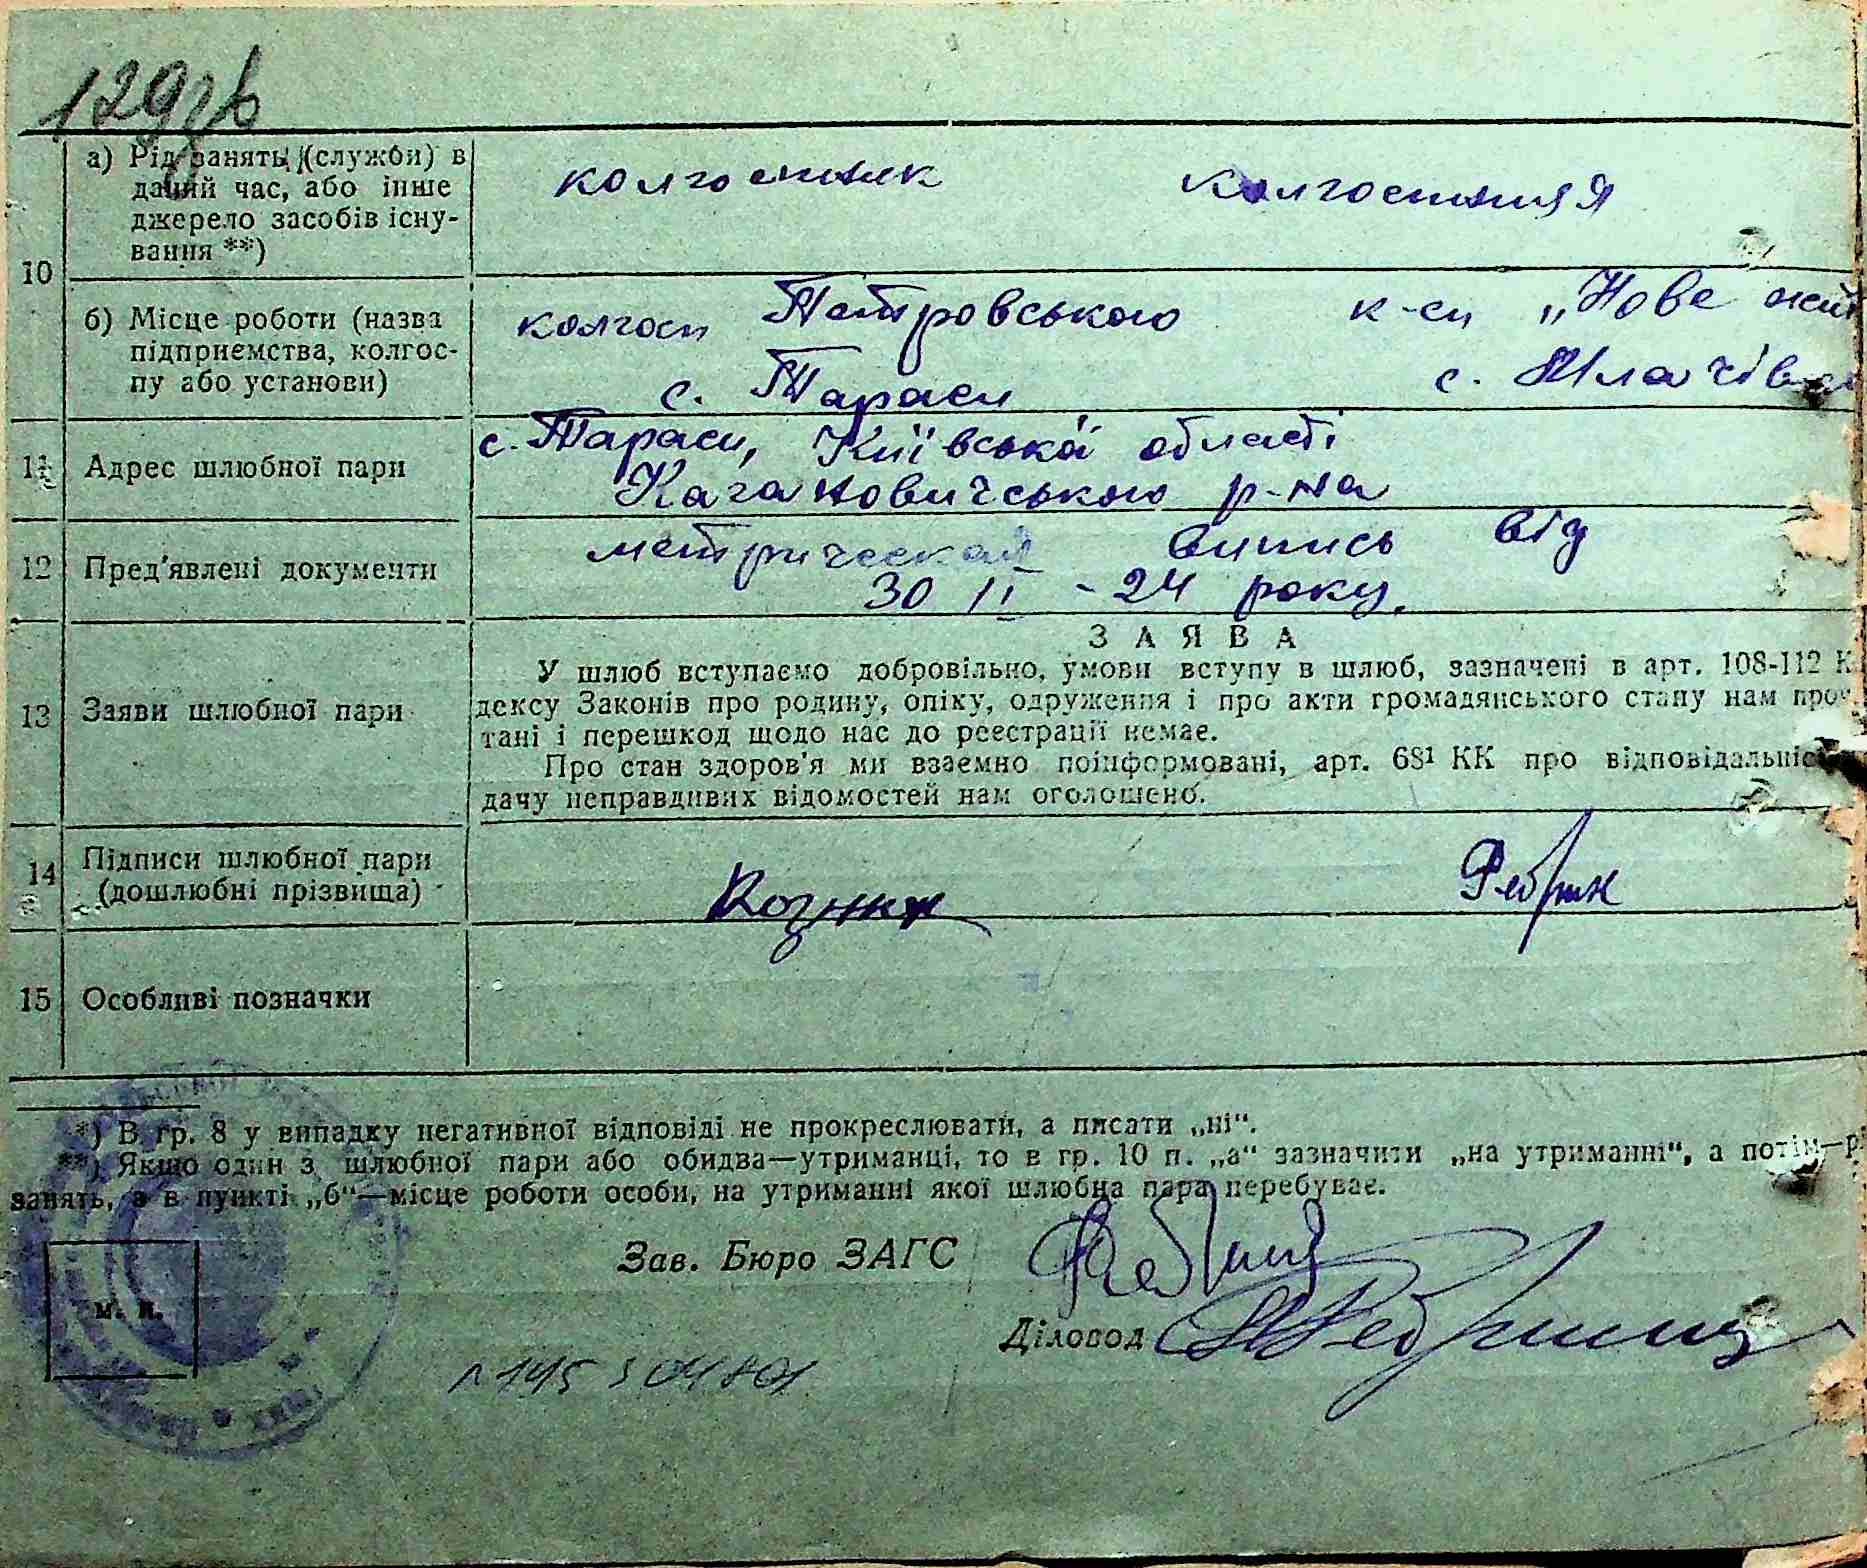 129зв
10
а) Рід занять (службы) в
даний час, або інше
джерело засобів існу-
вання **)
колгоспник
колгоспниця
б) Місце роботи (назва
підприємства, колгос-
пу або установи)
колгосп Петровського
с. Тараси
к-сп „Нове
с.
11
Адрес шлюбної пари
с. Тараси, Київської області
Кагановичського р-на
12
Пред'явлені документи
метрическая випись від
30 II - 24 року.
13
Заяви шлюбної пари
ЗАЯВА
У шлюб вступаємо добровільно, умови вступу в шлюб, зазначені в арт. 108-112 К
дексу Законів про родину, опіку, одруження і про акти громадянського стану нам про
тані і перешкод щодо нас до реєстрації немає.
Про стан здоров'я ми взаємно поінформовані, арт. 68¹ КК про відповідальніс
дачу неправдивих відомостей нам оголошено.
14
Підписи шлюбної пари
(дошлюбні прізвища)
15
Особливі позначки
*) В гр. 8 у випадку негативної відповіді не прокреслювати, а писати „ні“.
**) Якщо один з шлюбної пари або обидва—утриманці, то в гр. 10 п. „а“ зазначити „на утриманні“, а потім—р
занять, а в пункті „б“—місце роботи особи, на утриманні якої шлюбна пара перебуває.
Зав. Бюро ЗАГС
Діловод
М. П.